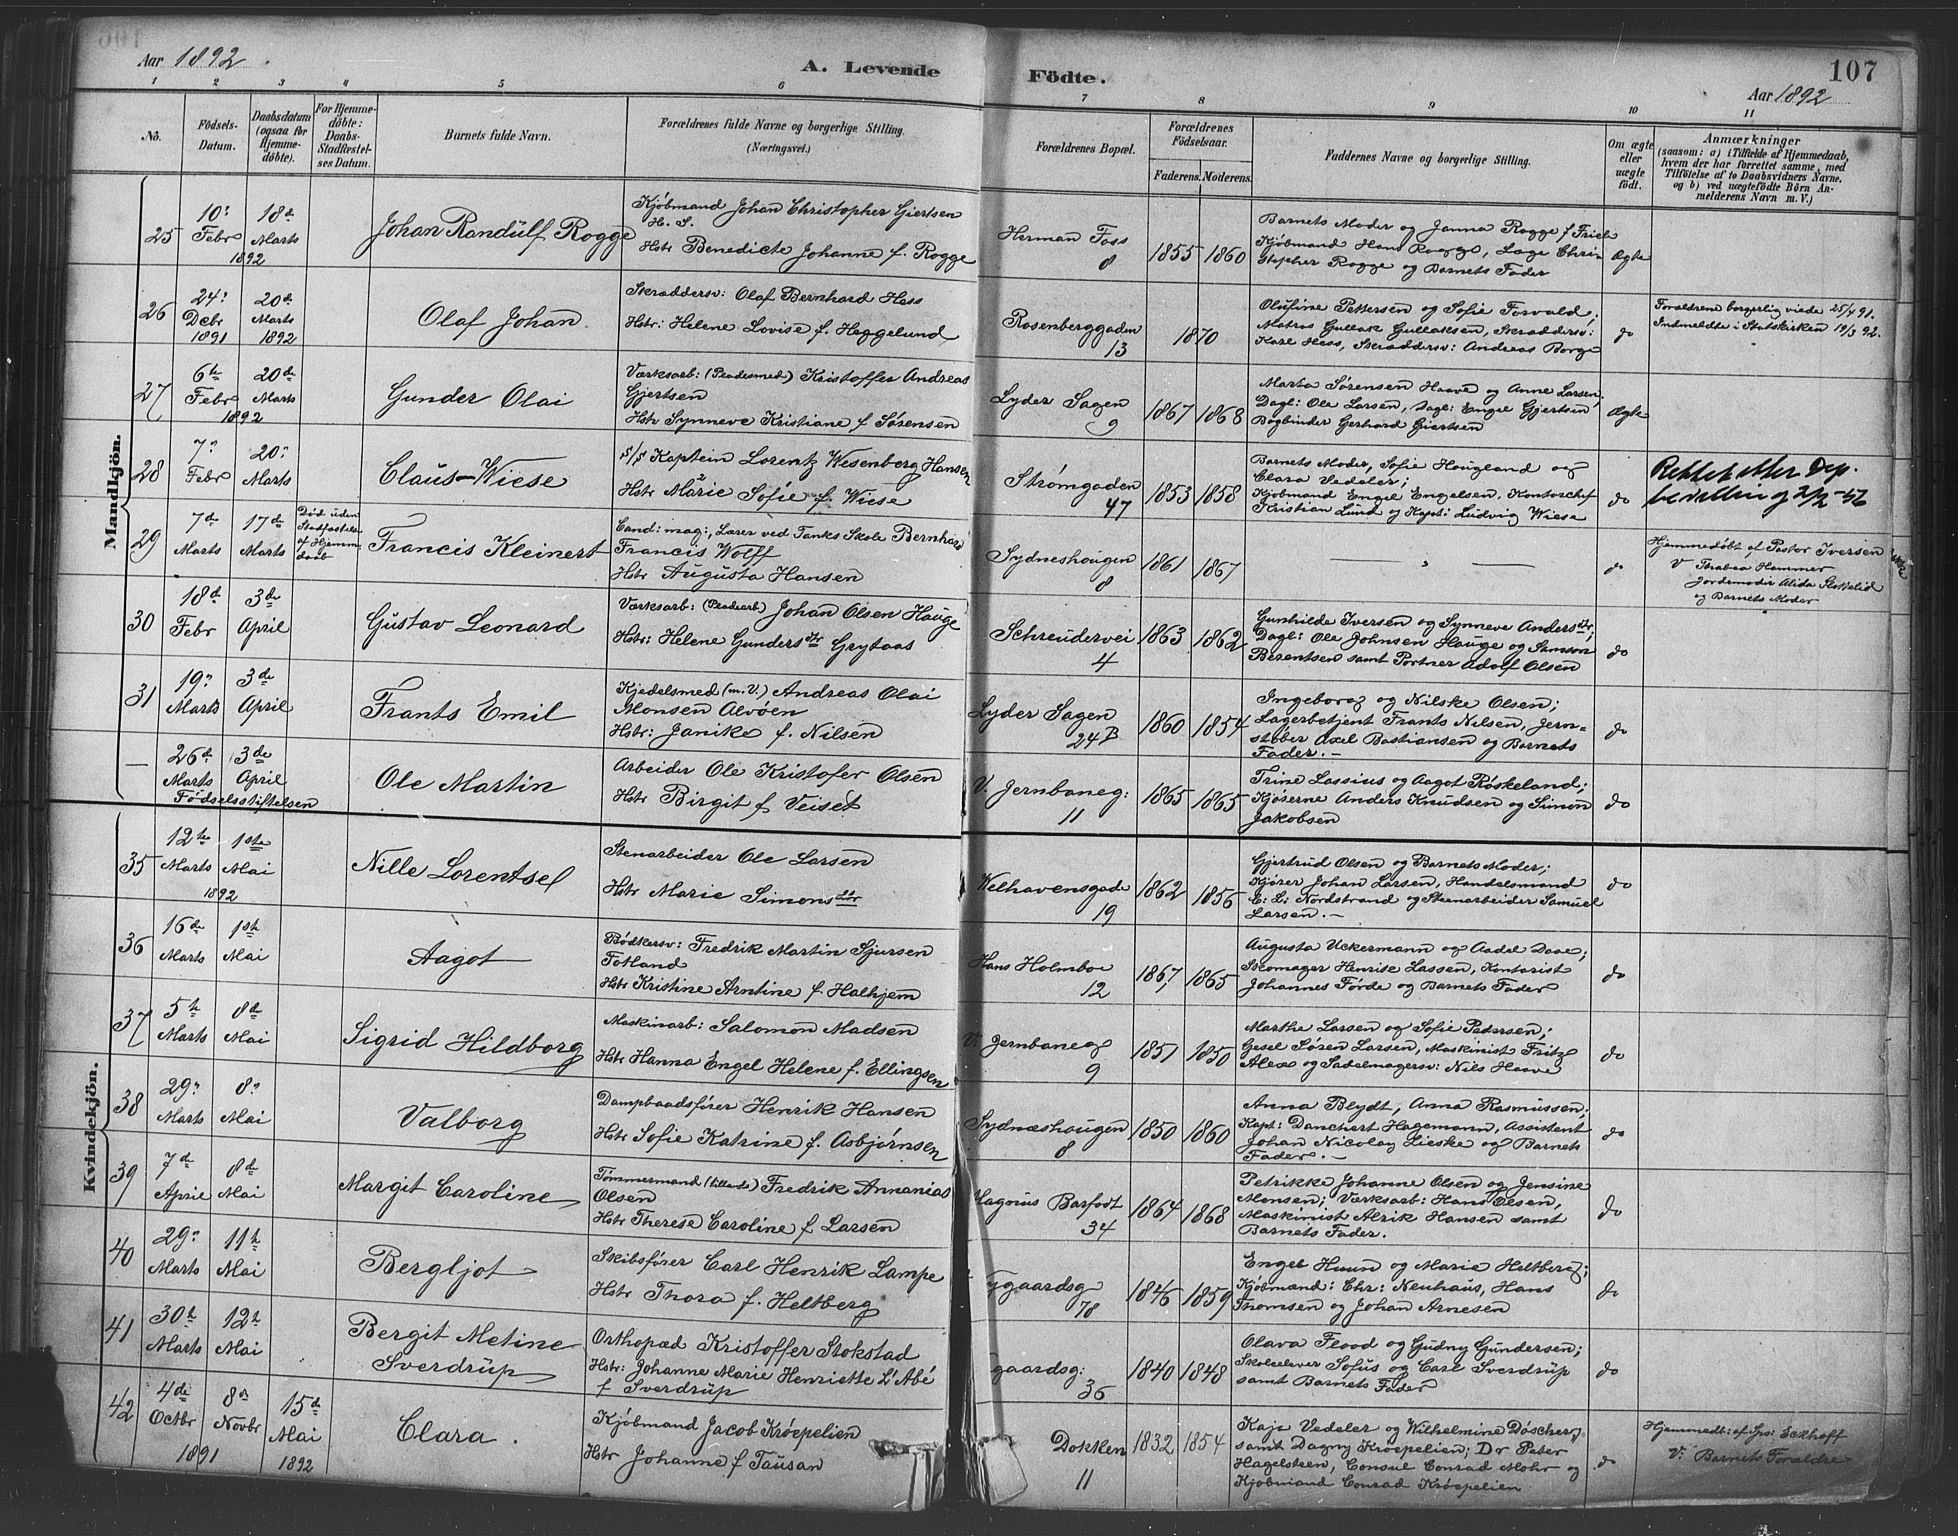 Aar 1892
A. Levende Födte.
107
Aar 1892
1 2 3 4 5 6 7 8 9 10 11
No.
Födsels-Datum.
Daabsdatum (ogsaa for Hjemmedøbte).
For Hjemmedøbte: Daabs-Stadfæstelses Datum.
Barnets fulde Navn.
Forældrenes fulde Navne og borgerlige Stilling. (Næringsvei.)
Forældrenes Bopæl.
Forældrenes Födselsaar.
Faderens. Moderens.
Faddernes Navne og borgerlige Stilling.
Om ægte eller uægte født.
Anmærkninger
(saasom: a) i Tilfælde af Hjemmedaab, hvem der har forrettet samme, med Tilföielse af to Daabsvidners Navne. og b) ved uægtefödte Börn Anmelderens Navn m.V.)
Mandkjön.
25
10. Febr 18de Marts
1892
Johan Randulf Rogge
Kjøbmand Johan Christopher Gjertsen
H. S.
Hstr Benedicte Johanne f. Rogge
Herman Foss
8
1855 1860
Barnets Moder og Janna Rogge f. Friele
Kjøbmand Hans Rogge, Lage Chri-
stopher Rogge og Barnets Fader
Ægte
26
24. Debr 1891
20de Marts 1892
Olaf Johan
Skræddersv: Olaf Bernhard Hess
Hstr: Helene Lovise f. Heggelund
Rosenberggaden
13
1870
Olufine Pettersen og Sofie Forvald;
Matros Gullak Gullaksen, Skræddersv:
Karl Hess, Skræddersv: Andreas Borge
do
Forældrene borgerlig viede 25/4 91.
Indmeldte i Statskirken 19/3 92.
27
6te Febr 20de Marts
1892
Gunder Olai
Værksarb: (Pladesmed) Kristoffer Andreas
Gjertsen
Hstr Synneve Kristiane f Sørensen
Lyder Sagen
9
1867 1868
Marta Sørensen Haave og Anne Larsen,
Dagl: Ole Larsen, Dagl: Engel Gjertsen,
Bogbinder Gerhard Giertsen
Ægte
28
7. Febr 20. Marts
Claus-Wiese
S/S Kaptein Lorentz Wesenberg Hansen
Hstr Marie Sofie f. Wiese
Strømgaden
47
1853 1858
Barnets Moder, Sofie Hougland og
Clara Vedeler;
Kjøbmand Engel Engelsen, Kontorchef
Kristian Lund og Kapt: Ludvig Wiese
do
Rettet etter Dep.
bevilling
29
7de Marts 17de Marts
Død uden Stadfæstelse af Hjemmedaab
Francis Kleinert
Cand: mag:, Lærer ved Tanks Skole Bernhard
Francis Wolff
Hstr Augusta Hansen
Sydneshougen
8
1861 1867
do
Hjemmedøbt af Pastor Iversen
V Thabea Hammer
Jordemodir Alida Slokelid
og Barnets Moder
30
18de Febr 3de April
Gustav Leonard
Værksarb: (Pladearb) Johan Olsen Hauge
Hstr: Helene Gundersdtr Grytaas
Schreudervei
4
1863 1862
Gunhilde Iversen og Synneve Andersdtr,
Dagl: Ole Johnsen Hauge og Samson
Berentsen samt Portner Adolf Olsen
do
31
19. Marts 3de April
Frants Emil
Kjedelsmed (m.V.) Andreas Olai
Monsen Alvøen
Hstr: Janike f. Nilsen
Lyder Sagen
24 B
1860 1854
Ingeborg og Nilske Olsen;
Lagerbetjent Frants Nilsen, Jern-
støber Axel Bastiansen og Barnets
Fader.-
do
—
26de Marts 3de April
Fødselsstiftelsen
Ole Martin
Arbeider Ole Kristofer Olsen
Hstr Birgit f Veiset
V. Jernbaneg:
11
1865 1865
Trine Lassius og Aagot Røskeland;
Kjøserne Anders Knudsen og Simon
Jakobsen
do
Kvindekjön.
35
12te Marts 1ste Mai
1892
Nille Lorentsel
Stenarbeider Ole Larsen
Hstr Marie Simonsdtr
Welhavensgade
19
1862 1856
Gjertrud Olsen og Barnets Moder;
Kjører Johan Larsen, Handelsmand
E: L: Nordstrand og Steenarbeider Samuel
Larsen.-
do
36
16de Marts 1ste Mai
Aagot
Bødkersv: Fredrik Martin Sjursen
Fotland
Hstr Kristine Arntine f. Halhjem
Hans Holmboe
12
1867 1865
Augusta Uckermann og Aadel Daae;
Skomager Henrik Lassen, Kontorist
Johannes Førde og Barnets Fader
do
37
5te Marts 8de Mai
Sigrid Hildborg
Maskinarb: Salomon Madsen
Hstr Hanna Engel Helene f. Ellingsen
V: Jernbaneg
9
1851 1850
Marthe Larsen og Sofie Pedersen;
Gesel Søren Larsen, Maskinist Fritz
Alex og Sadelmagersv: Nils Haave
do
38
29. Marts 8. Mai
Valborg
Dampbaadsfører Henrik Hansen
Hstr Sofie Katrine f. Asbjørnsen
Sydnæshougen
8
1850 1860
Anna Blydt, Anna Rasmussen;
Kapt: Danchert Hagemann, Assistent
Johan Nicolay Lieske og Barnets
Fader.-
do
39
7de April 8de Mai
Margit Caroline
Tømmermand Fredrik Annanias
Olsen
Hstr Therese Caroline f Larsen
Magnus Barfodt
34
1864 1868
Petrikke Johanne Olsen og Jensine
Monsen; Værksarb: Hans Olsen,
Maskinist Alrik Hansen samt
Barnets Fader.
do
40
29. Marts 11te Mai
Bergljot
Skibsfører Carl Henrik Lampe
Hstr Thora f. Heltberg
ygaardsg
78
1846 1859
Engel Huun og Marie Heltberg;
Kjøbmand: Chr: Neuhaus, Hans
Thomsen og Johan Arnesen
do
41
30te Marts 12te Mai
Bergit Metine
Sverdrup
Orthopæd Kristoffer Stokstad
Hstr: Johanne Marie Henriette L'Abé
f Sverdrup
gaardsg:
36
1840 1848
Olava Flood og Gudny Gundersen;
Skoleelever Sofus og Carl Sverdrup
samt Barnets Fader
do
42
4de Octbr 8de Novbr 1891
15de Mai 1892
Clara.
Kjøbmand Jacob Krøepelien
Hstr Johanne f Tausan
Dokken
11
1832 1854
Kaje Vedeler og Wilhelmine Döscher,
samt Dagny Krøepelien; Dr Peter
Hagelsteen, Consul Conrad Mohr og
Kjøbmand Conrad Krøepelien
do
Hjemmedt: af Sps: Eckhoff
V: Barnets Forældre